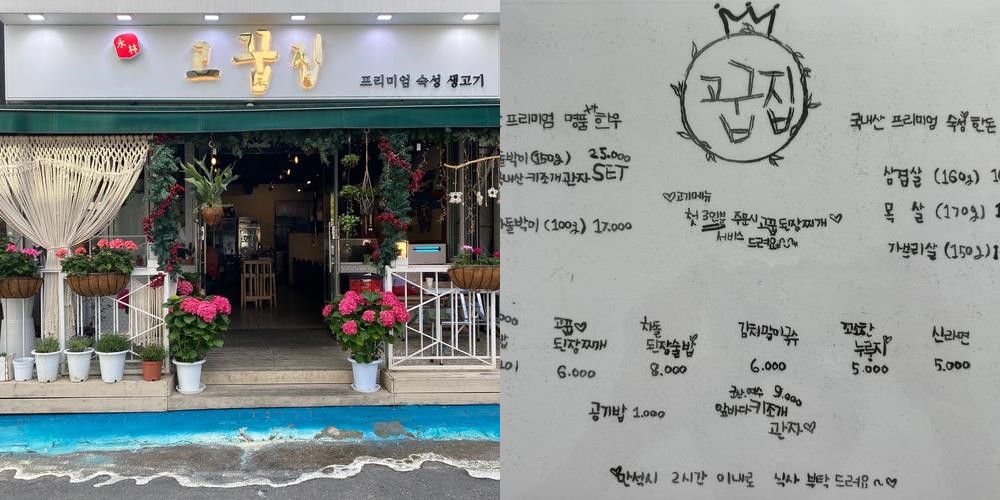 永林
고꿉집
프리미엄 숙성 생고기
고꿉집
프리미엄 명품 한우
박이 (150g) 25.000
내산 키조개 관자 SET
차돌박이 (100g) 17.000
국내산 프리미엄 숙성 한돈
삼겹살 (160g)
목 살 (170g)
가브리살 (150g)
고기메뉴
첫 3인분 주문시 고꿉된장찌개
서비스 드려요~
고꿉 된장찌개 6.000
차돌 된장술밥 8.000
김치말이국수 6.000
꼬소한 누룽지 5.000
신라면 5.000
공기밥 1.000
9.000
앞바다 키조개
관자
만석시 2시간 이내로 식사 부탁 드려요~